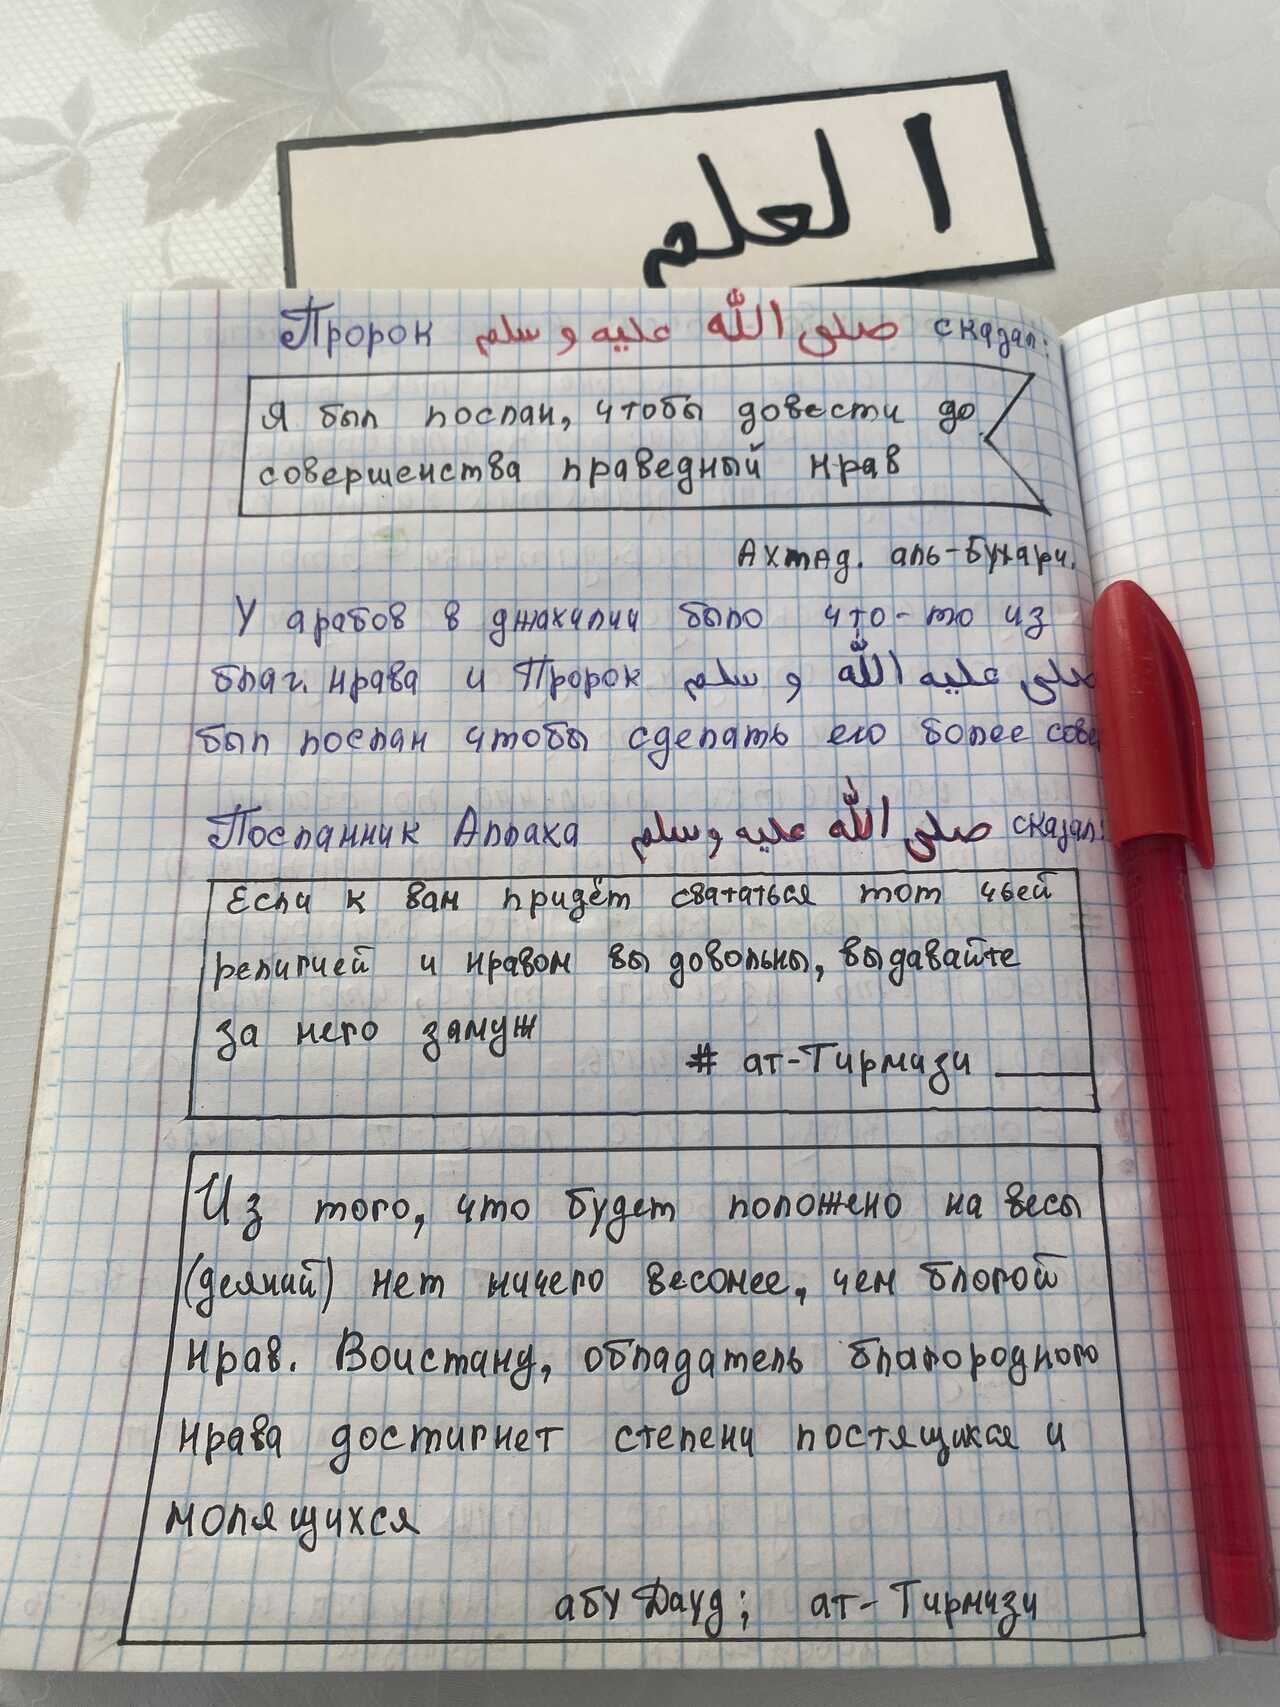 العلم
Пророк صلى الله عليه و سلم сказал:
Я был послан, чтобы довести до
совершенства праведный нрав
Ахмад. аль-Бухари.
У арабов в джахилии было что-то из
благ. нрава и Пророк صلى الله عليه و سلم
был послан чтобы сделать его более сове
Посланник Аллаха صلى الله عليه و سلم сказал:
Если к вам придёт свататься тот чьей
религией и нравом вы довольны, выдавайте
за него замуж
# ат-Тирмизи
Из того, что будет положено на весы
(деяний) нет ничего весомее, чем благой
нрав. Воистину, обладатель благородного
нрава достигнет степени постящихся и
молящихся
абу Дауд; ат-Тирмизи